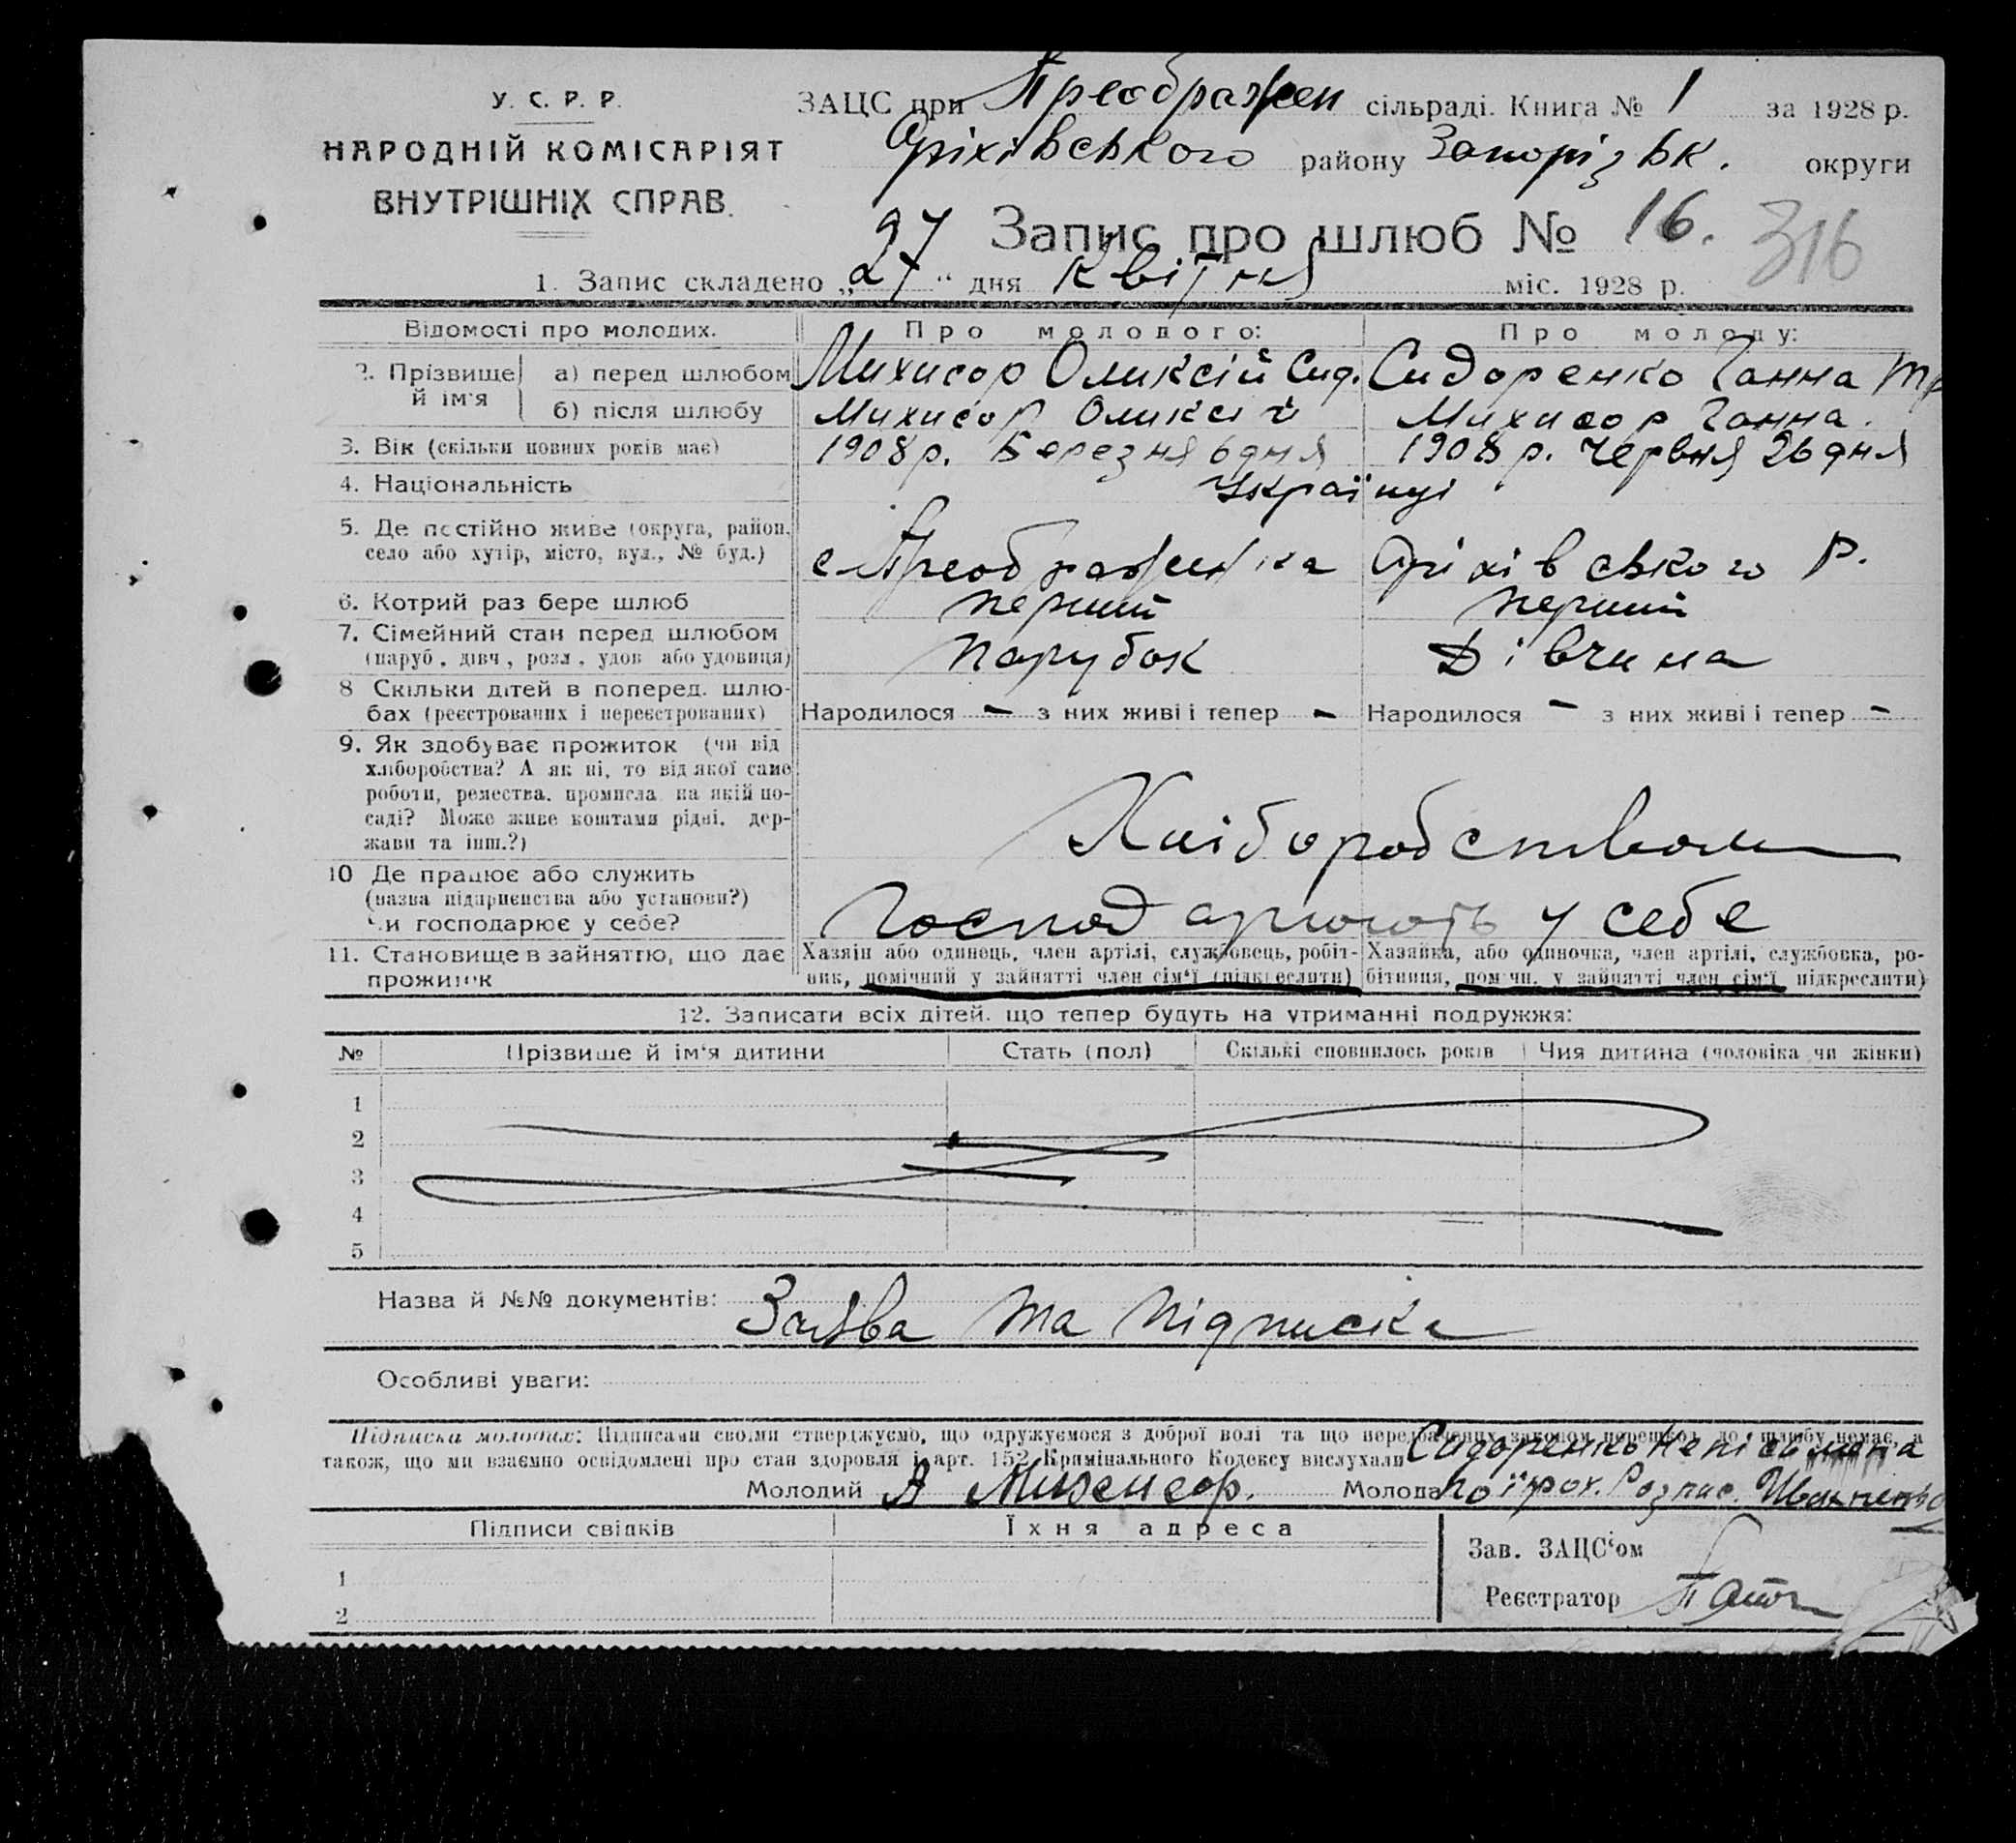 У. С. Р. Р.
НАРОДНІЙ КОМІСАРІЯТ
ВНУТРІШНІХ СПРАВ.
ЗАЦС при Преображен сільраді. Книга № 1 за 1928 р.
Оріхівського району Запорізьк. округи
27 Запис про шлюб № 16. 316
1. Запис складено „27“ дня Квітня міс. 1928 р.
Відомості про молодих. Про молодого: Про молоду:
2. Прізвище й ім'я а) перед шлюбом Михисор Оликсій Сид. Сидоренко Ганна Тр
б) після шлюбу Михисор Оликсій Михисор Ганна.
3. Вік (скільки повних років має) 1908 р. Березня 6 дня 1908 р. Червня 26 дня
4. Національність Українці
5. Де постійно живе (округа, район, село або хутір, місто, вул., № буд.) с. Преображенка Оріхівського Р.
6. Котрий раз бере шлюб перший перший
7. Сімейний стан перед шлюбом (паруб., дівч., розл., удов. або удовиця) Парубок Дівчина
8 Скільки дітей в поперед. шлюбах (реєстрованих і нереєстрованих) Народилося - з них живі і тепер - Народилося - з них живі і тепер -
9. Як здобуває прожиток (чи від хліборобства? А як ні, то від якої саме роботи, ремества, промисла на якій посаді? Може живе коштами рідні, держави та інш.?) Хліборобством
10 Де працює або служить (назва підприємства або установи?) Чи господарює у себе? Господарюють у себе
11. Становище в зайняттю, що дає прожиток Хазяїн або одинець, член артілі, службовець, робітник, помічний у зайнятті член сім'ї (підкреслити) Хазяйка, або одиночка, член артілі, службовка, робітниця, помічн. у зайнятті член сім'ї підкреслити)
12. Записати всіх дітей, що тепер будуть на утриманні подружжя:
№ Прізвище й ім'я дитини Стать (пол) Скількі сповнилось років Чия дитина (чоловіка чи жінки)
1
2
3
4
5
Назва й №№ документів: Заява та підписка
Особливі уваги:
Підписка молодих: Підписами своїми стверджуємо, що одружуємося з доброї волі та що передбачених законом перешкод до шлюбу немає, а
також, що ми взаємно освідомлені про стан здоровля і арт. 152 Кримінального Кодексу вислухали Сидоренко неписьмена
Молодий А Михисор. Молода по її прох. Розпис.
Підписи свідків Їхня адреса Зав. ЗАЦС'ом
1
2
Реєстратор